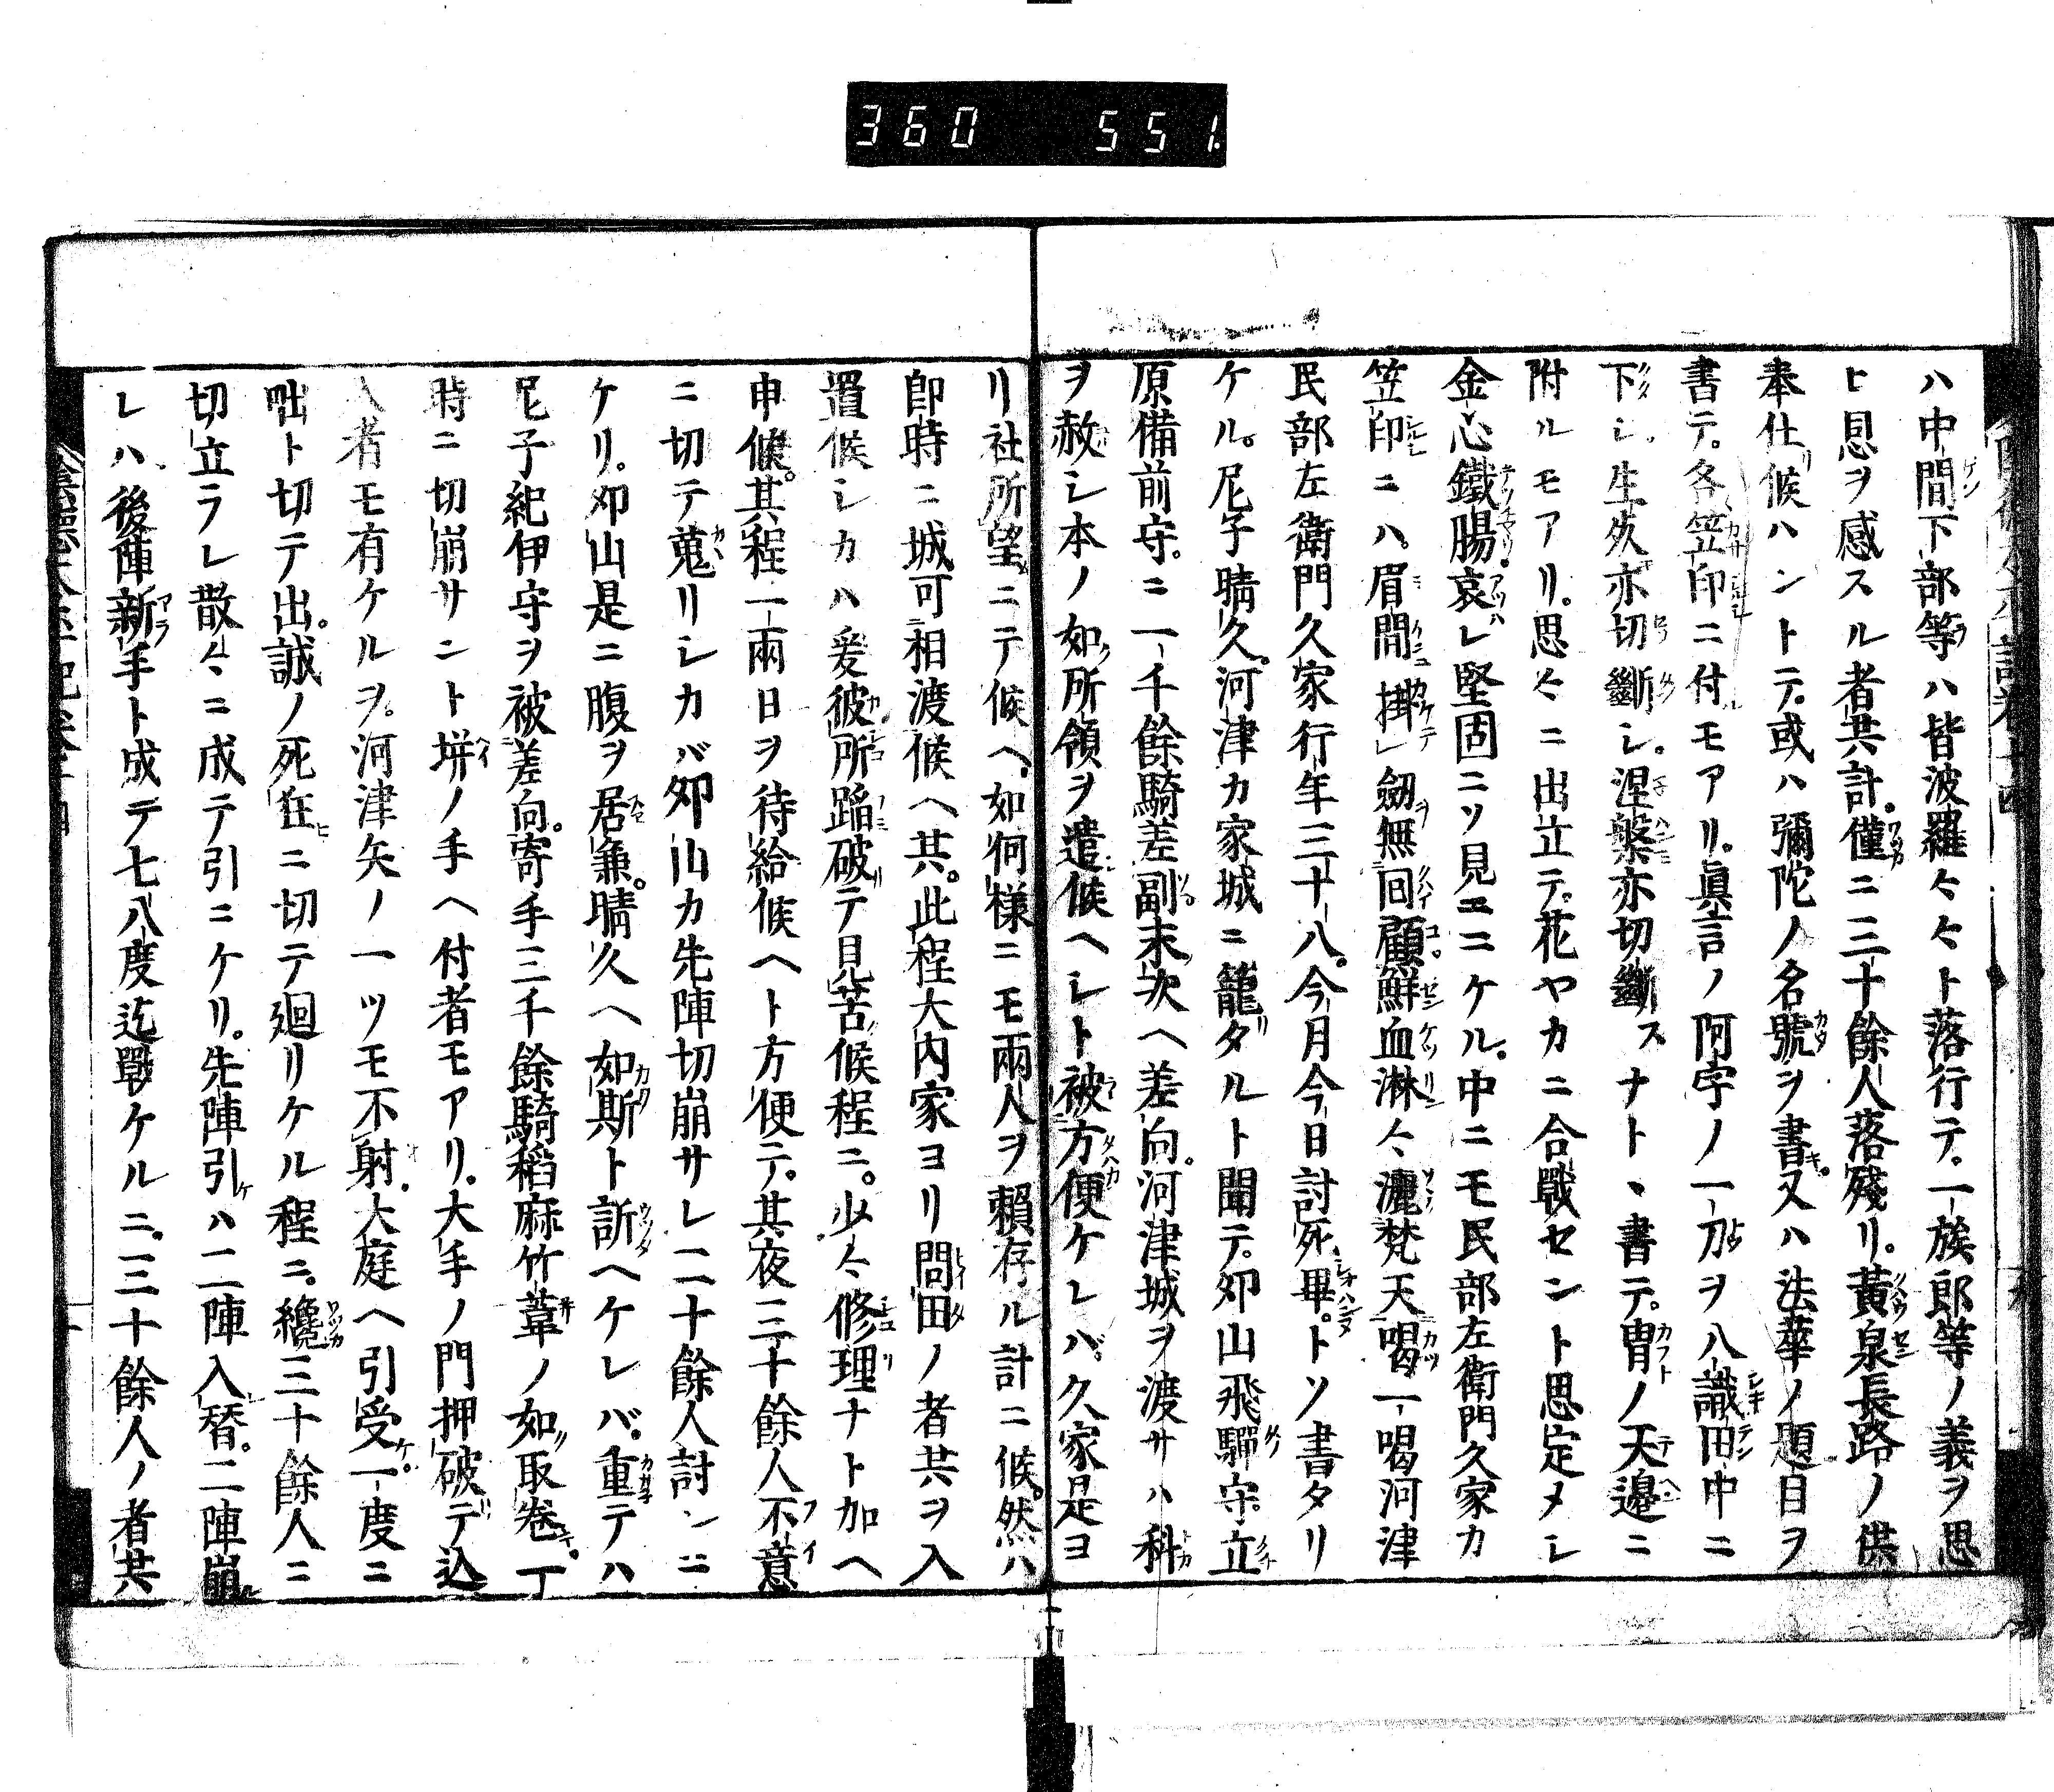 360 551.
ハ中間下部等ハ皆波羅々々ト落行テ。一族郎等ノ義ヲ思
ヒ恩ヲ感スル者共計。僅ニ三十餘人落殘リ。黄泉長路ノ供
奉仕候ハントテ。或ハ彌陀ノ名號ヲ書。又ハ法華ノ題目ヲ
書テ。各笠印ニ付モアリ。眞言ノ阿字ノ一刀ヲ八識田中ニ
下シ。生死亦切斷シ。涅槃亦切斷スナトヽ書テ。冑ノ天邉ニ
附ルモアリ。思々ニ出立テ。花ヤカニ合戰セント思定メシ
金心鐵腸哀レ堅固ニソ見エニケル。中ニモ民部左衛門久家カ
笠印ニハ。眉間掛劔無回顧。鮮血淋々灑梵天喝一喝河津
民部左衛門久家行年三十八。今月今日討死畢。トソ書タリ
ケル。尼子晴久。河津カ家城ニ籠タルト聞テ。夘山飛驒守。立
原備前守。ニ一千餘騎差副末次ヘ差向。河津城ヲ渡サハ科
ヲ赦シ本ノ如所領ヲ遣候ヘシト被方便ケレバ。久家是ヨ
リ社所望ニテ候ヘ。如何樣ニモ兩人ヲ賴存ル計ニ候。然ハ
即時ニ城可相渡候ヘ共。此程大内家ヨリ問田ノ者共ヲ入
置候シカハ爰彼所蹈破テ見苦候程ニ。少々修理ナト加ヘ
申候。其程一兩日ヲ待給候ヘト方便ニテ。其夜三十餘人不意
ニ切テ蒐リシカバ夘山カ先陣切崩サレ二十餘人討ンニ
ケリ。夘山是ニ腹ヲ居兼。晴久ヘ如斯ト訴ヘケレバ。重テハ
尼子紀伊守ヲ被差向。寄手三千餘騎稻麻竹葦ノ如取卷。一
時ニ切崩サント塀ノ手ヘ付者モアリ。大手ノ門押破テ込
入者モ有ケルヲ。河津矢ノ一ツモ不射。大庭ヘ引受。一度ニ
咄ト切テ出。誠ノ死狂ニ切テ廻リケル程ニ。纔三十餘人ニ
切立ラレ散々ニ成テ引ニケリ。先陣引ハ二陣入替。二陣崩
レハ後陣新手ト成テ七八度迄戰ケルニ。三十餘人ノ者共